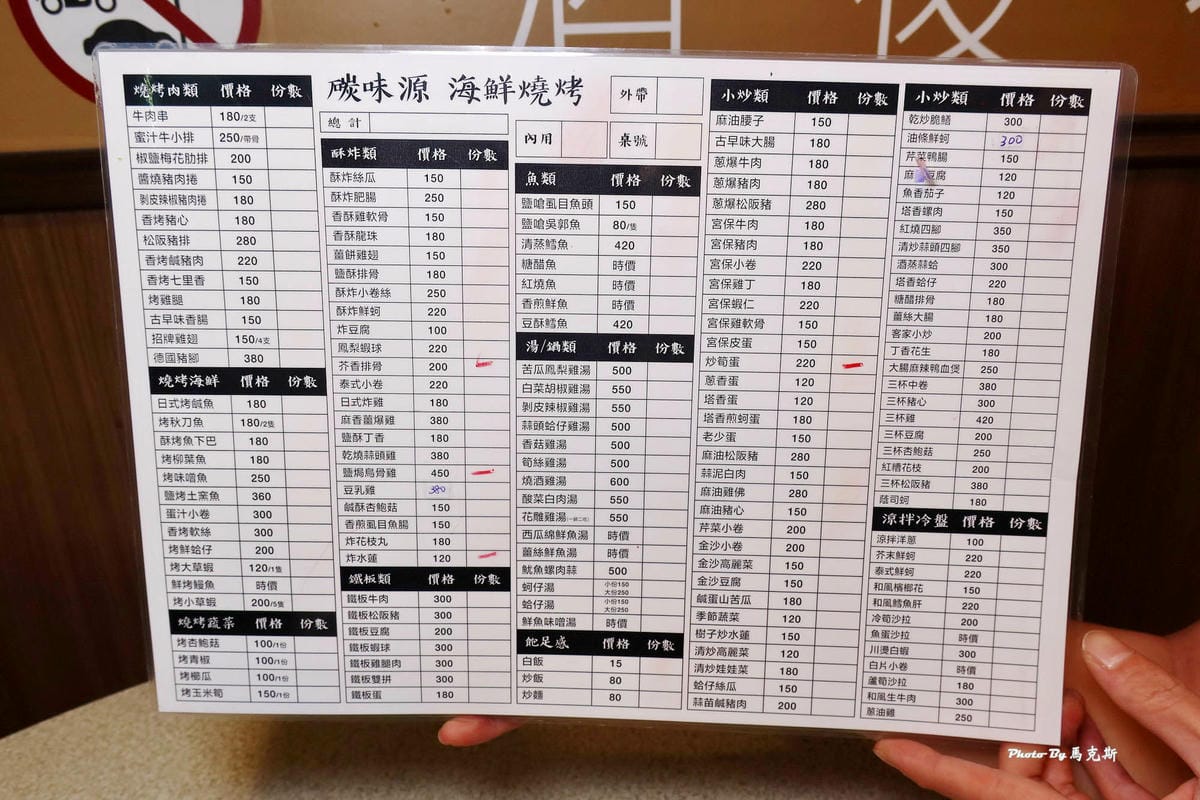 酒後
碳味源 海鮮燒烤
外帶
總計
內用
桌號
燒烤肉類 價格 份數
牛肉串 180/2支
蜜汁牛小排 250/帶骨
椒鹽梅花肋排 200
醬燒豬肉捲 150
剝皮辣椒豬肉捲 180
香烤豬心 180
松阪豬排 280
香烤鹹豬肉 220
香烤七里香 150
烤雞腿 180
古早味香腸 150
招牌雞翅 150/4支
德國豬腳 380
燒烤海鮮 價格 份數
日式烤鹹魚 180
烤秋刀魚 180/2隻
酥烤魚下巴 180
烤柳葉魚 180
烤味噌魚 250
鹽烤土窯魚 360
蛋汁小卷 300
香烤軟絲 300
烤鮮蛤仔 200
烤大草蝦 120/1隻
鮮烤鰻魚 時價
烤小草蝦 200/5隻
燒烤蔬菜 價格 份數
烤杏鮑菇 100/1份
烤青椒 100/1份
烤櫛瓜 100/1份
烤玉米筍 150/1份
酥炸類 價格 份數
酥炸絲瓜 150
酥炸肥腸 250
香酥雞軟骨 150
香酥龍珠 180
薑餅雞翅 150
鹽酥排骨 180
酥炸小卷絲 250
酥炸鮮蚵 220
炸豆腐 100
鳳梨蝦球 220
芥香排骨 200
泰式小卷 220
日式炸雞 180
麻香薑爆雞 380
鹽酥丁香 180
乾燒蒜頭雞 380
鹽焗烏骨雞 450
豆乳雞 380
鹹酥杏鮑菇 150
香煎虱目魚腸 150
炸花枝丸 180
炸水蓮 120
鐵板類 價格 份數
鐵板牛肉 300
鐵板松阪豬 300
鐵板豆腐 200
鐵板蝦球 300
鐵板雞腿肉 300
鐵板雙拼 300
鐵板蛋 180
魚類 價格 份數
鹽嗆虱目魚頭 150
鹽嗆吳郭魚 80/隻
清蒸鱈魚 420
糖醋魚 時價
紅燒魚 時價
香煎鮮魚 時價
豆酥鱈魚 420
湯/鍋類 價格 份數
苦瓜鳳梨雞湯 500
白菜胡椒雞湯 550
剝皮辣椒雞湯 550
蒜頭蛤仔雞湯 500
香菇雞湯 500
筍絲雞湯 500
燒酒雞湯 600
酸菜白肉湯 550
花雕雞湯(一雞二吃) 550
西瓜綿鮮魚湯 時價
薑絲鮮魚湯 時價
魷魚螺肉蒜 500
蚵仔湯 小份150 大份250
蛤仔湯 小份150 大份250
鮮魚味噌湯 時價
飽足感 價格 份數
白飯 15
炒飯 80
炒麵 80
小炒類 價格 份數
麻油腰子 150
古早味大腸 180
蔥爆牛肉 180
蔥爆豬肉 180
蔥爆松阪豬 280
宮保牛肉 180
宮保豬肉 180
宮保小卷 220
宮保雞丁 180
宮保蝦仁 220
宮保雞軟骨 150
宮保皮蛋 150
炒筍蛋 220
蔥香蛋 120
塔香蛋 120
塔香煎蚵蛋 180
老少蛋 150
麻油松阪豬 280
蒜泥白肉 150
麻油雞佛 280
麻油豬心 150
芹菜小卷 200
金沙小卷 200
金沙高麗菜 150
金沙豆腐 150
鹹蛋山苦瓜 180
季節蔬菜 120
樹子炒水蓮 150
清炒高麗菜 120
清炒娃娃菜 180
蛤仔絲瓜 150
蒜苗鹹豬肉 200
小炒類 價格 份數
乾炒脆鱔 300
油條鮮蚵 300
芹菜鴨腸 150
麻 豆腐 120
魚香茄子 120
塔香螺肉 150
紅燒四腳 350
清炒蒜頭四腳 350
酒蒸蒜蛤 300
塔香蛤仔 220
糖醋排骨 180
薑絲大腸 180
客家小炒 200
丁香花生 180
大腸麻辣鴨血煲 250
三杯中卷 380
三杯豬心 300
三杯雞 420
三杯豆腐 200
三杯杏鮑菇 250
紅糟花枝 200
三杯松阪豬 380
蔭司蚵 180
涼拌冷盤 價格 份數
涼拌洋蔥 100
芥末鮮蚵 220
泰式鮮蚵 220
和風檳榔花 150
和風鱈魚肝 220
冷筍沙拉 200
魚蛋沙拉 時價
川燙白蝦 300
白片小卷 時價
蘆筍沙拉 180
和風生牛肉 300
蔥油雞 250
Photo By 馬克斯